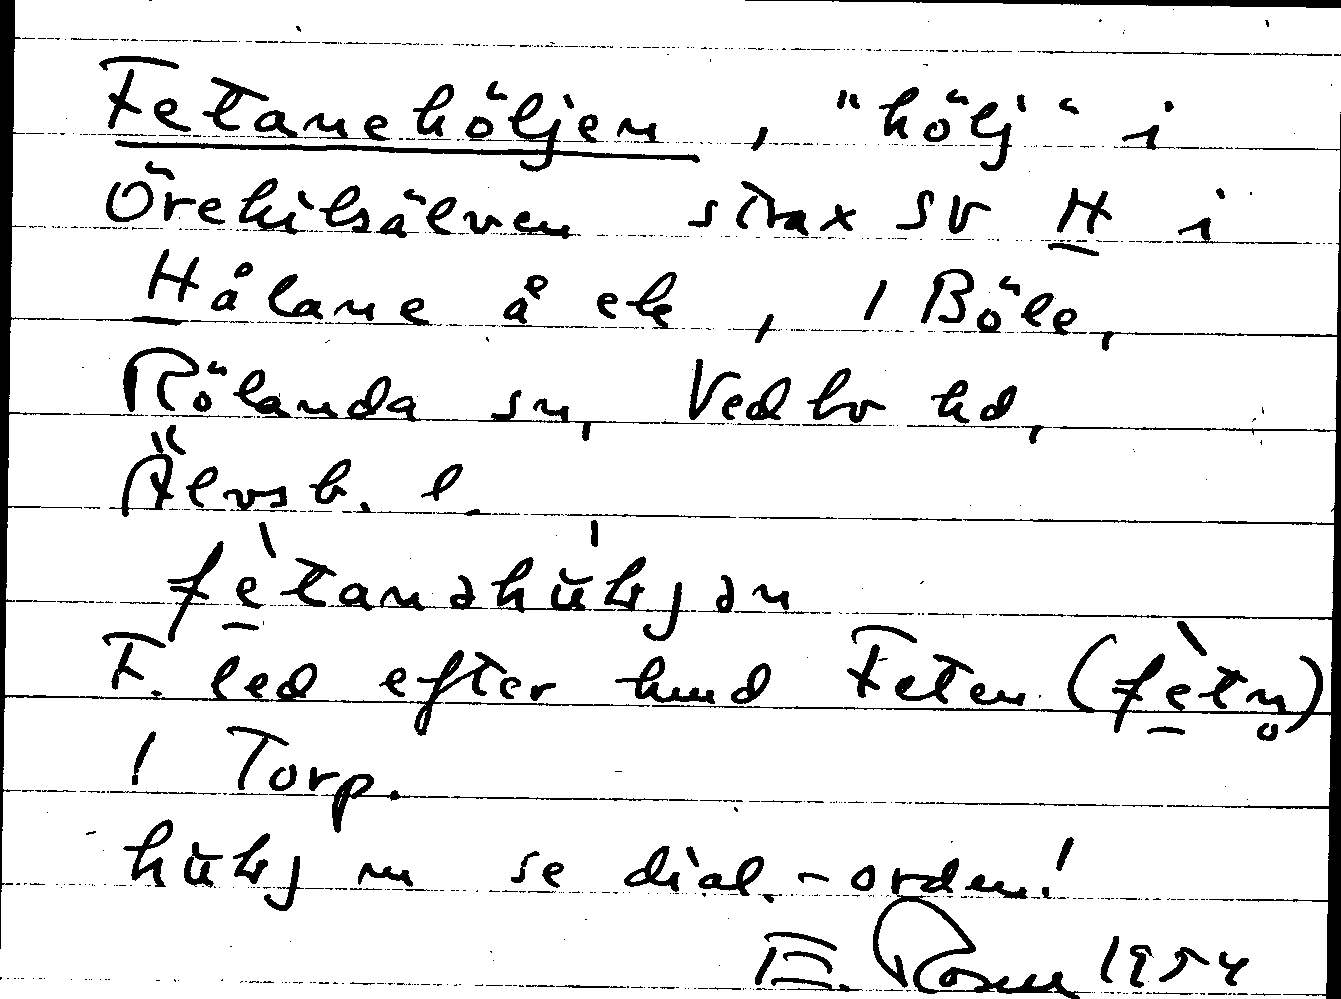 Fetaneköljen, "hölj" i
Örekilsälven strax SV H i
Hålane å ek, / Böle,
Rölanda sn, Vedbo hd,
Älvsb. l.
F. led efter hmd Feten (fètn̥)
/ Torp.
m se dial.-orden!
E. Rosen 1954